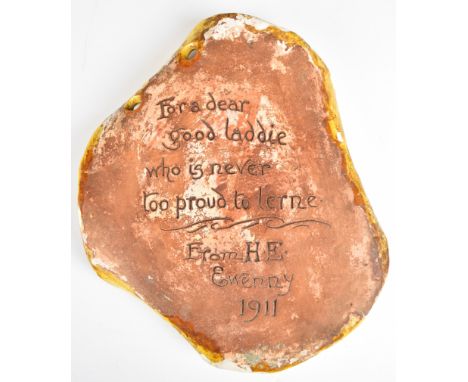 For a dear
good laddie
who is never
too proud to lerne
From H.E.
Ewenny
1911